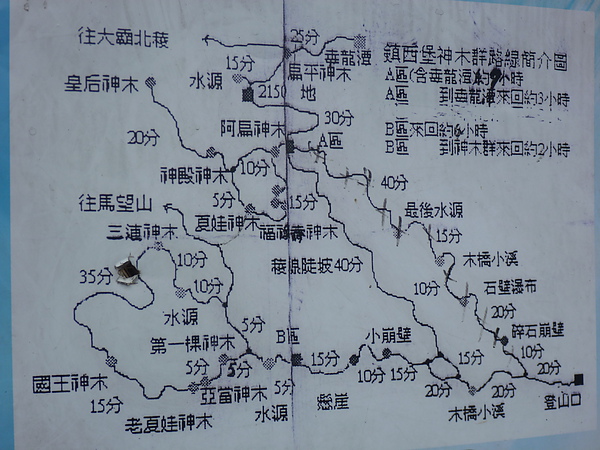 往大霸北稜
25分
毒龍潭
鎮西堡神木群路線簡介圖
A區(含毒龍潭)約 小時
A區 到毒龍潭來回約3小時
B區來回約6小時
B區 到神木群來回約2小時
皇后神木
水源
15分
扁平神木
2150
地
30分
20分
阿扁神木
A區
40分
神殿神木
10分
5分
15分
夏娃神木
往馬望山
最後水源
15分
三漣神木
10分
稜線陡坡40分
木橋小溪
35分
10分
10分
石壁瀑布
水源
20分
5分
碎石崩壁
第一棵神木
B區
小崩壁
10分
5分
5分
15分
15分
10分
15分
20分
20分
20分
國王神木
15分
亞當神木
5分
水源
懸崖
木橋小溪
登山口
老夏娃神木